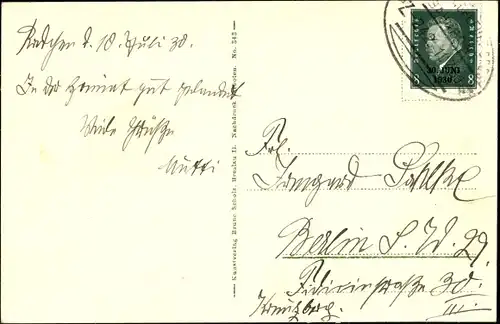 d. 10. Juli 30.
In der Heimat gut gelandet
Viele Grüße
Mutti
Kunstverlag Bruno Scholz, Breslau II. Nachdruck verboten. No. 343
Deutsches Reich
30. JUNI
1930
8 8
Frl.
Irmgard
Berlin S.W. 29.
Fidicinstraße 30.
III.
Kreuzberg.